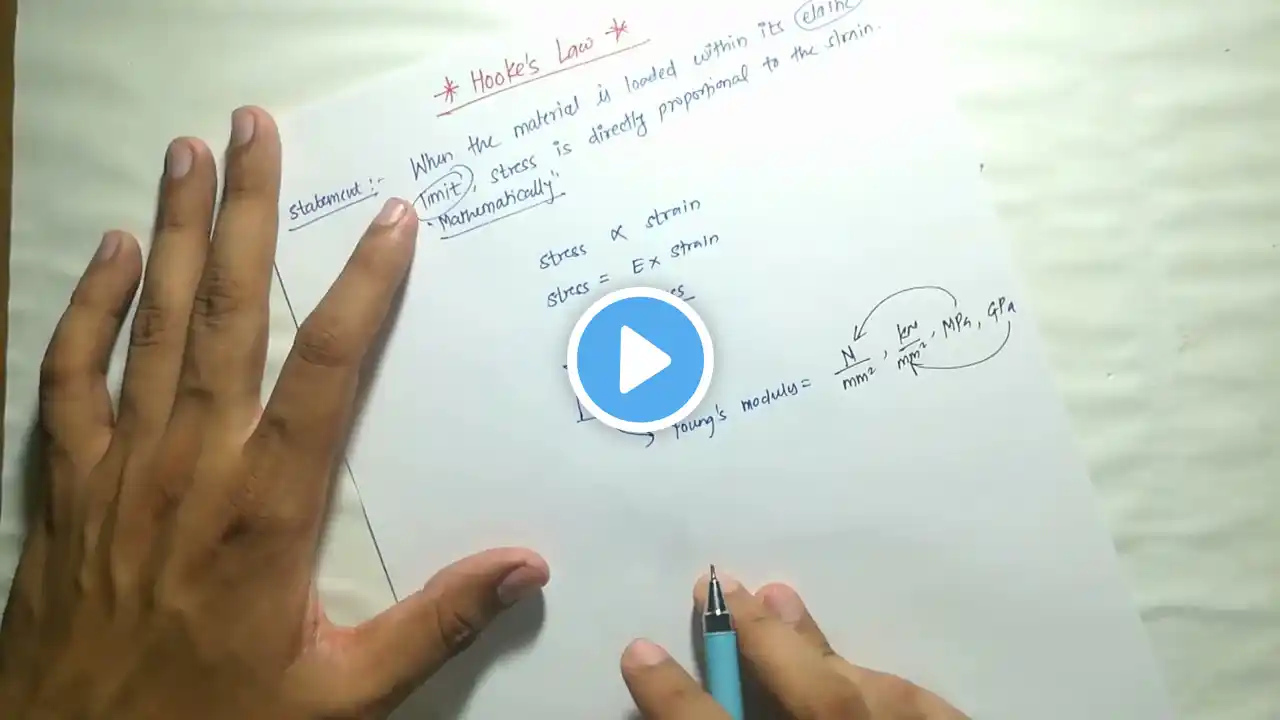 * Hooke's Law *
statement :- When the material is loaded within its elastic
limit, stress is directly proportional to the strain.
"Mathematically"
stress ∝ strain
stress = E x strain
Young's modulus = N/mm², kN/mm², MPa, GPa